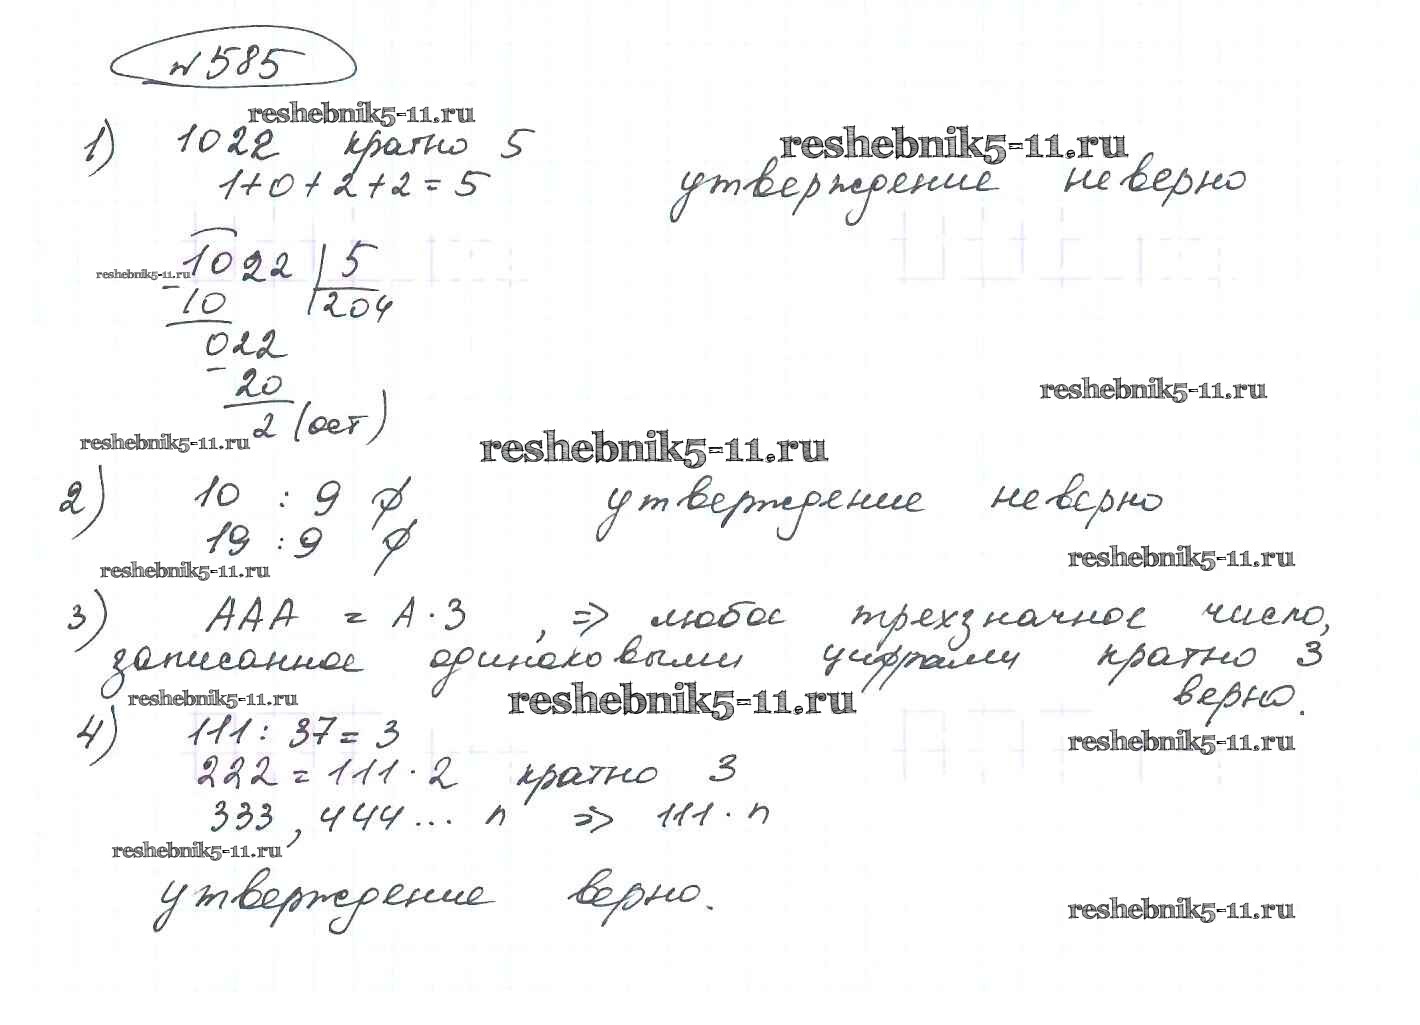 №585
reshebnik5-11.ru
1) 1022 кратно 5
reshebnik5-11.ru
1+0+2+2=5 утверждение неверно
1022 | 5
reshebnik5-11.ru
- 10 204
022
- 20
reshebnik5-11.ru
2 (ост)
reshebnik5-11.ru
reshebnik5-11.ru
2) 10 : 9 ∅ утверждение неверно
19 : 9 ∅
reshebnik5-11.ru
reshebnik5-11.ru
3) AAA = A·3 , => любое трехзначное число,
записанное одинаковыми цифрами кратно 3
reshebnik5-11.ru
reshebnik5-11.ru
верно.
4) 111 : 37 = 3
reshebnik5-11.ru
222 = 111·2 кратно 3
333, 444... n => 111·n
reshebnik5-11.ru
утверждение верно.
reshebnik5-11.ru